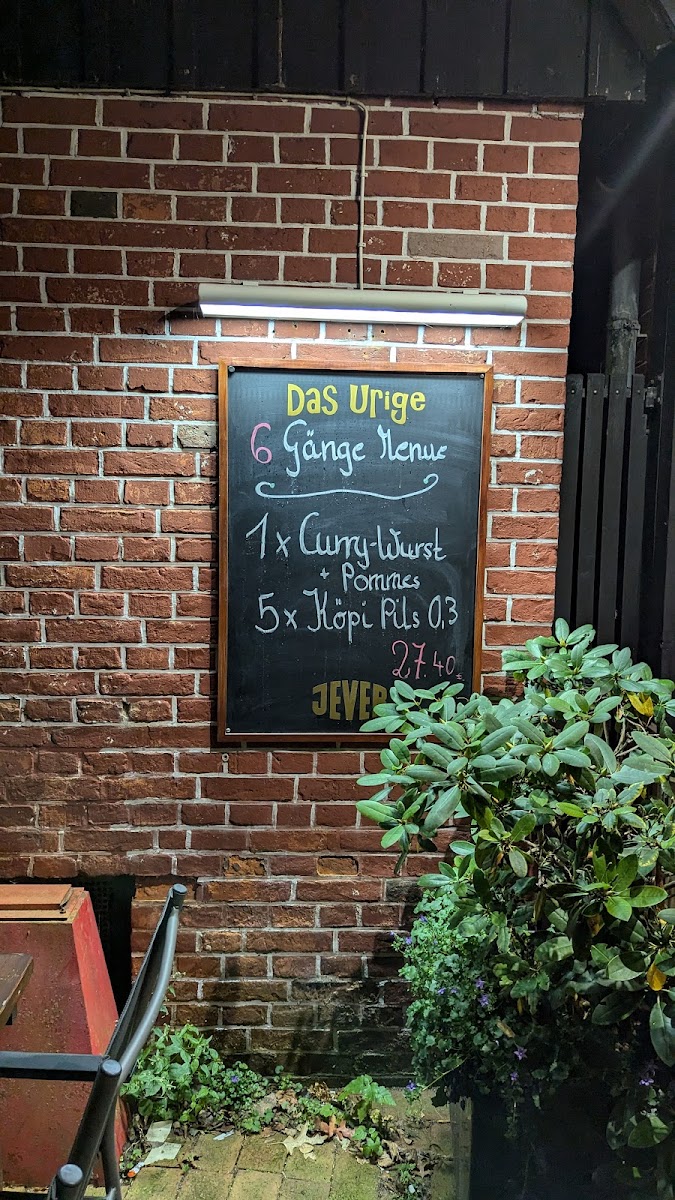 Das Urige
6 Gänge Menue
1x Curry-Wurst
+ Pommes
5x Köpi Pils 0,3
27.40€
JEVER